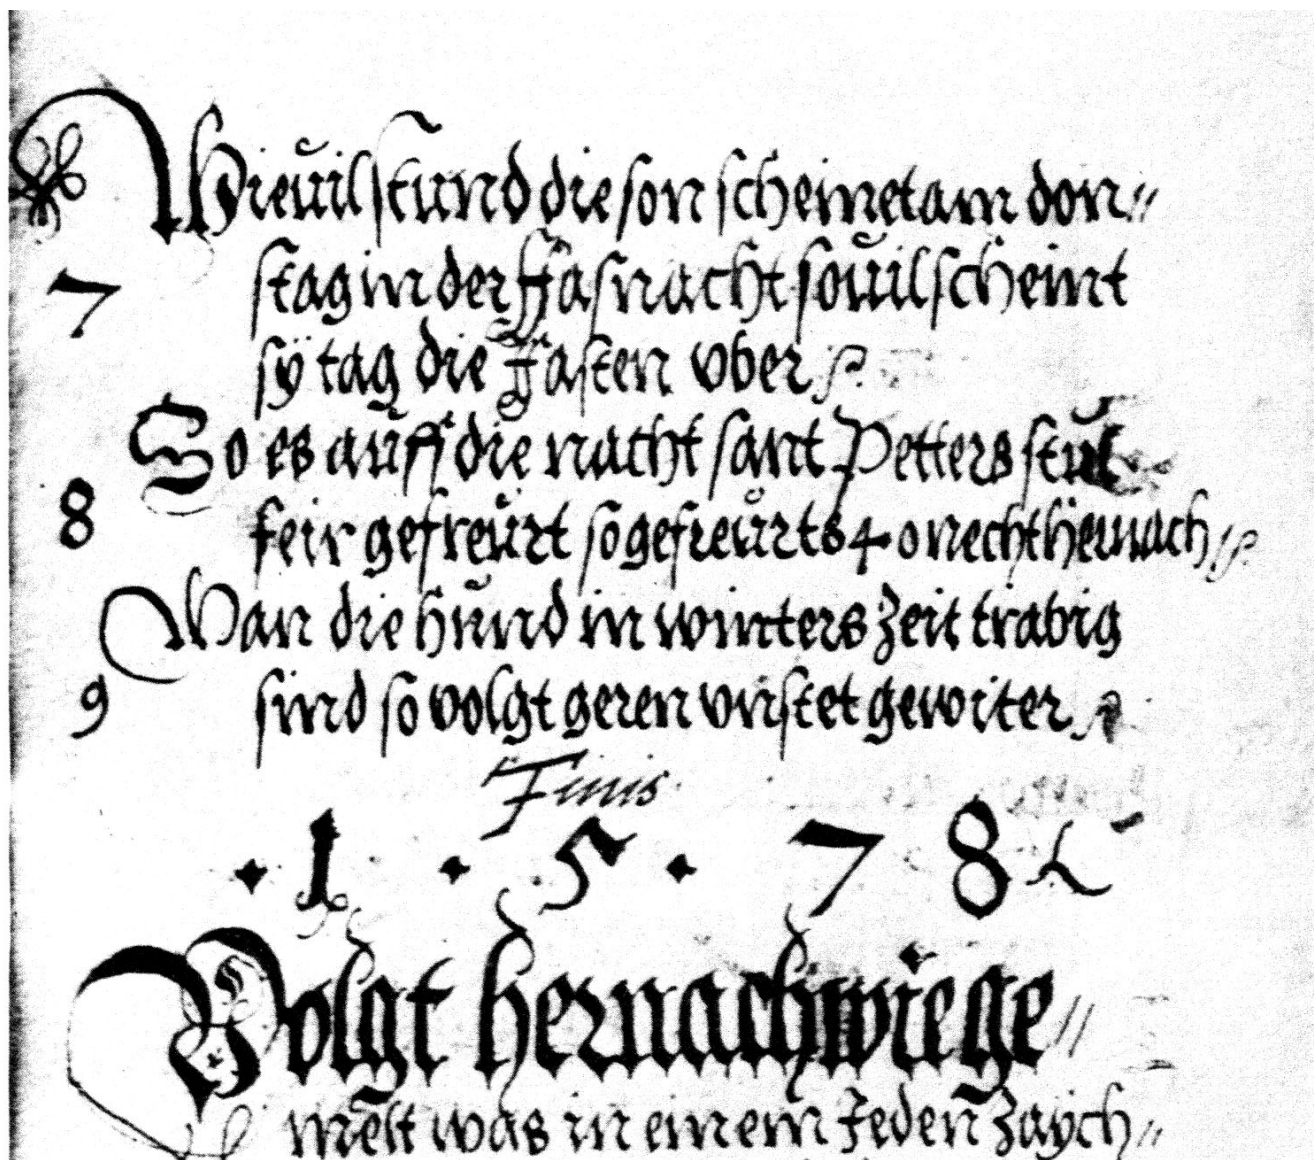 Wievil stund die son scheinet am don〃
7 stag in der ffasnacht so vil scheint
sÿ tag die Fasten vber
So es auff die nacht sant Petters stul
8 feir gefreurt so gefreurts 40 necht hernach
Wan die hund in winters zeit trabig
9 sind so volgt geren vnstet gewiter
Finis
· 1 · 5 · 7 8
Volgt hernach wie ge〃
melt was in einem Jeden Zaÿch〃